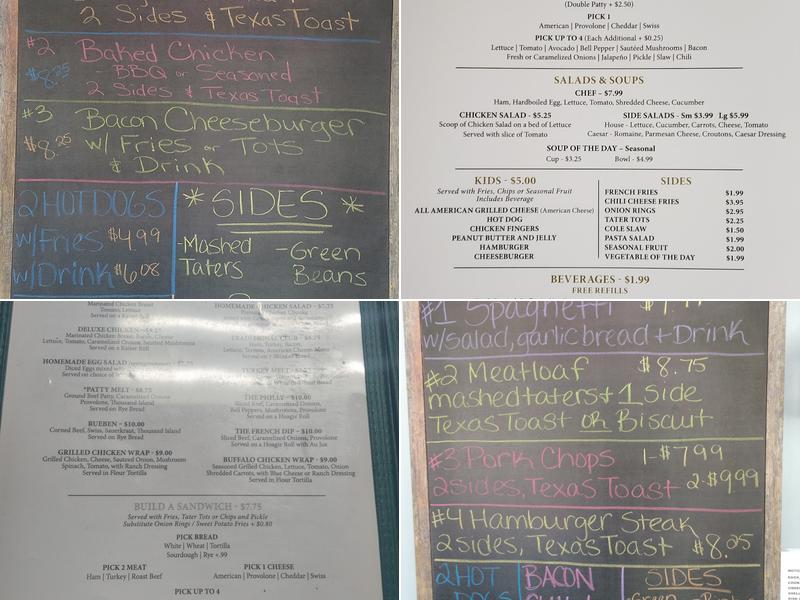 2 Sides & Texas Toast
#2 Baked Chicken
$8.25 - BBQ or Seasoned
2 Sides & Texas Toast
#3 Bacon Cheeseburger
$8.25 w/ Fries or Tots
& Drink
2 HOT DOGS
w/Fries $4.99
w/Drink $6.08
* SIDES *
-Mashed Taters
-Green Beans
(Double Patty + $2.50)
PICK 1
American | Provolone | Cheddar | Swiss
PICK UP TO 4 (Each Additional + $0.25)
Lettuce | Tomato | Avocado | Bell Pepper | Sautéed Mushrooms | Bacon
Fresh or Caramelized Onions | Jalapeño | Pickle | Slaw | Chili
SALADS & SOUPS
CHEF - $7.99
Ham, Hardboiled Egg, Lettuce, Tomato, Shredded Cheese, Cucumber
CHICKEN SALAD - $5.25
Scoop of Chicken Salad on a bed of Lettuce
Served with slice of Tomato
SIDE SALADS - Sm $3.99 Lg $5.99
House - Lettuce, Cucumber, Carrots, Cheese, Tomato
Caesar - Romaine, Parmesan Cheese, Croutons, Caesar Dressing
SOUP OF THE DAY – Seasonal
Cup - $3.25 Bowl - $4.99
KIDS - $5.00
Served with Fries, Chips or Seasonal Fruit
Includes Beverage
ALL AMERICAN GRILLED CHEESE (American Cheese)
HOT DOG
CHICKEN FINGERS
PEANUT BUTTER AND JELLY
HAMBURGER
CHEESEBURGER
SIDES
FRENCH FRIES $1.99
CHILI CHEESE FRIES $3.95
ONION RINGS $2.95
TATER TOTS $2.25
COLE SLAW $1.50
PASTA SALAD $1.99
SEASONAL FRUIT $2.00
VEGETABLE OF THE DAY $1.99
BEVERAGES - $1.99
FREE REFILLS
Marinated Chicken Breast
Tomato, Lettuce
Served on a Kaiser Roll
DELUXE CHICKEN
Marinated Chicken Breast, Bacon, Cheese
Lettuce, Tomato, Caramelized Onions, Sauteed Mushrooms
Served on a Kaiser Roll
HOMEMADE EGG SALAD
Diced Eggs mixed with
Served on choice of
*PATTY MELT - $8.75
Ground Beef Patty, Caramelized Onions
Provolone, Thousand Island
Served on Rye Bread
RUEBEN - $10.00
Corned Beef, Swiss, Sauerkraut, Thousand Island
Served on Rye Bread
GRILLED CHICKEN WRAP - $9.00
Grilled Chicken, Cheese, Sauteed Onion, Mushroom
Spinach, Tomato, with Ranch Dressing
Served in Flour Tortilla
HOMEMADE CHICKEN SALAD - $7.75
TRADITIONAL CLUB
Ham, Turkey, Bacon,
Lettuce, Tomato, American Cheese, Mayo
TURKEY MELT
THE PHILLY - $10.00
Sliced Beef, Caramelized Onions,
Bell Peppers, Mushrooms, Provolone
Served on a Hoagie Roll
THE FRENCH DIP - $9.00
Sliced Beef, Caramelized Onions, Provolone
Served on a Hoagie Roll with Au Jus
BUFFALO CHICKEN WRAP - $9.00
Seasoned Grilled Chicken, Lettuce, Tomato, Onion
Shredded Carrots, with Blue Cheese or Ranch Dressing
Served in Flour Tortilla
BUILD A SANDWICH - $7.75
Served with Fries, Tater Tots or Chips and Pickle
Substitute Onion Rings / Sweet Potato Fries + $0.80
PICK BREAD
White | Wheat | Tortilla
Sourdough | Rye +.99
PICK 2 MEAT
Ham | Turkey | Roast Beef
PICK 1 CHEESE
American | Provolone | Cheddar | Swiss
PICK UP TO 4
#1 Spaghetti
w/Salad, garlic bread + Drink
#2 Meatloaf $8.75
mashed taters + 1 Side
Texas Toast OR Biscuit
#3 Pork Chops 1-$7.99
2 sides, Texas Toast 2-$9.99
#4 Hamburger Steak
2 sides, Texas Toast $8.25
2 HOT
DOGS
BACON
SIDES